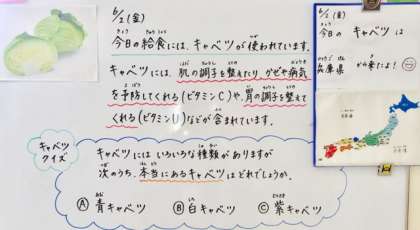 6/2(金)
今日の給食には、キャベツが使われています。
キャベツには、肌の調子を整えたり かぜや病気
を予防してくれる(ビタミンC)や、胃の調子を整えて
くれる(ビタミンU)などが含まれています。
キャベツクイズ
キャベツにはいろいろな種類がありますが
次のうち、本当にあるキャベツはどれでしょうか。
Ⓐ青キャベツ Ⓑ白キャベツ Ⓒ紫キャベツ
6/2(金)
今日の キャベツ は
兵庫県 から来たよ!